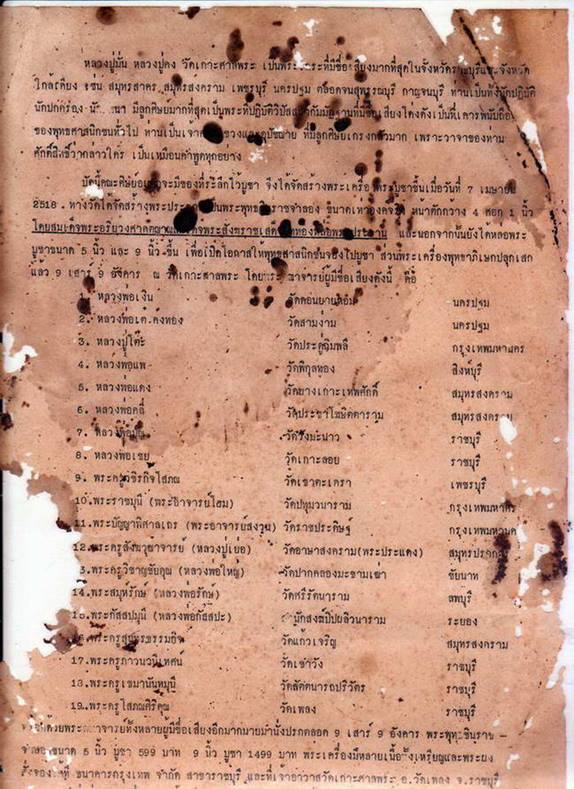 หลวงปู่มั่น หลวงปู่คง วัดเกาะศาลพระ เป็นพระ ที่มีชื่อเสียงมากที่สุดในจังหวัดราชบุรีและจังหวัด
ใกล้เคียง เช่น สมุทรสาคร สมุทรสงคราม เพชรบุรี นครปฐม ตลอดจนสุพรรณบุรี กาญจนบุรี ท่านเป็นทั้งนักปฏิบัติ
นักปกครอง มีลูกศิษย์มากที่สุดเป็นพระที่ปฏิบัติวิปัสสนา ที่มีชื่อเสียงโด่งดังเป็นที่เคารพนับถือ
ของพุทธศาสนิกชนทั่วไป ท่านเป็นเจ้า และ มีลูกศิษย์เกรงกลัวมาก เพราะวาจาของท่าน
ศักดิ์สิทธิ์ว่ากล่าวใคร เป็นเหมือนคำพูดทุกอย่าง
บัดนี้คณะศิษย์ จะมีของที่ระลึกไว้บูชา จึงได้จัดสร้างพระเครื่อง พระบูชาขึ้นเมื่อวันที่ 7 เมษายน
2518 . ทางวัดได้จัดสร้างพระประธานเป็นพระพุทธชินราชจำลอง ขนาดเท่าองค์จริง หน้าตักกว้าง 4 ศอก 1 นิ้ว
โดยสมเด็จพระอริยวงศาคตญาณ สมเด็จพระสังฆราชเสด็จ เททองหล่อพระประธาน และนอกจากนั้นยังได้หล่อพระ
บูชาขนาด 5 นิ้ว และ 9 นิ้ว ขึ้น เพื่อเปิดโอกาสให้พุทธศาสนิกชนจองไปบูชา ส่วนพระเครื่องพุทธาภิเษกปลุกเสก
แล้ว 9 เสาร์ 9 อังคาร ณ วัดเกาะศาลพระ โดยพระอาจารย์ผู้มีชื่อเสียงดังนี้ คือ
หลวงพ่อเงิน วัดดอนยายหอม นครปฐม
2. หลวงพ่อเต๋ คงทอง วัดสามง่าม นครปฐม
3. หลวงปู่โต๊ะ วัดประดู่ฉิมพลี กรุงเทพมหานคร
4. หลวงพ่อแพ วัดพิกุลทอง สิงห์บุรี
5. หลวงพ่อแดง วัดบางเกาะเทพศักดิ์ สมุทรสงคราม
6. หลวงพ่อคลี่ วัดประชาโฆสิตาราม สมุทรสงคราม
7. หลวงพ่อ วัดโรงมะนาว ราชบุรี
8. หลวงพ่อเชย วัดเกาะลอย ราชบุรี
9. พระครูวชิรกิจโสภณ วัดเขาตะเครา เพชรบุรี
10.พระราชมุนี (พระอาจารย์โฮม) วัดปทุมวนาราม กรุงเทพมหานคร
11.พระบัญญาพิศาลเถร (พระอาจารย์สงวน) วัดราชประดิษฐ์ กรุงเทพมหานคร
12.พระครูสังฆวุฒาจารย์ (หลวงปู่เยอ) วัดอาษาสงคราม(พระประแดง) สมุทรปราการ
3.พระครูวิชาญชัยคุณ (หลวงพ่อใหญ่) วัดปากคลองมะขามเฒ่า ชัยนาท
14.พระสมุห์รักษ์ (หลวงพ่อรักษ์) วัดศรีรัตนาราม ลพบุรี
15.พระกัสสปมุนี (หลวงพ่อกัสสปะ) สำนักสงฆ์ปิปผลิวนาราม ระยอง
16.พระครูสุนทรธรรมกิจ วัดแก้วเจริญ สมุทรสงคราม
17.พระครูภาวนวนิเทศน์ วัดเขาวัง ราชบุรี
18.พระครูเขมานันทมุนี วัดสัตตนารถปริวัตร ราชบุรี
19.พระครูโสภณศิริคุณ วัดเพลง ราชบุรี
ด้วยพระอาจารย์ทั้งหลายผู้มีชื่อเสียงอีกมากมายมานั่งปรกตลอด 9 เสาร์ 9 อังคาร พระพุทธชินราช –
จำลองขนาด 5 นิ้ว บูชา 599 บาท 9 นิ้ว บูชา 1499 บาท พระเครื่องมีหลายเนื้อทั้งเหรียญและพระผง
สั่งจองได้ที่ ธนาคารกรุงเทพ จำกัด สาขาราชบุรี และที่เจ้าอาวาสวัดเกาะศาลพระ อ.วัดเพลง จ.ราชบุรี